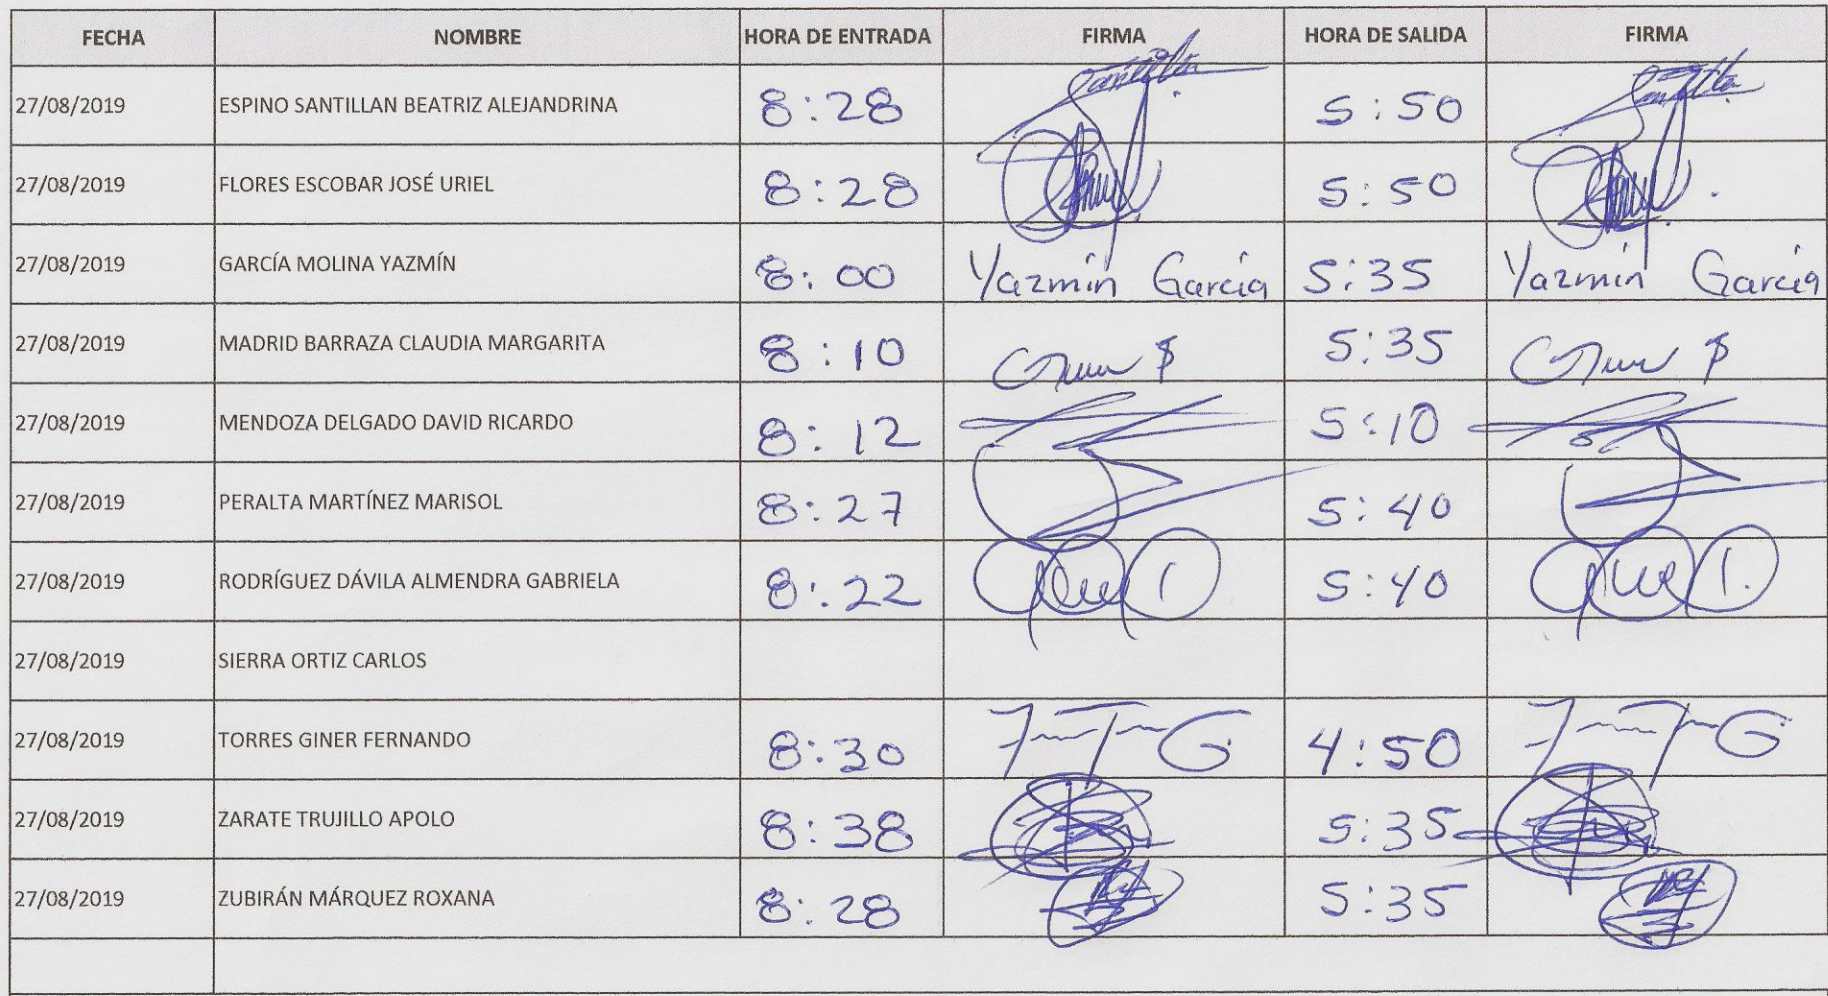 FECHA NOMBRE HORA DE ENTRADA FIRMA HORA DE SALIDA FIRMA
27/08/2019 ESPINO SANTILLAN BEATRIZ ALEJANDRINA 8:28 5:50
27/08/2019 FLORES ESCOBAR JOSÉ URIEL 8:28 5:50
27/08/2019 GARCÍA MOLINA YAZMÍN 8:00 Yazmín García 5:35 Yazmín García
27/08/2019 MADRID BARRAZA CLAUDIA MARGARITA 8:10 5:35
27/08/2019 MENDOZA DELGADO DAVID RICARDO 8:12 5:10
27/08/2019 PERALTA MARTÍNEZ MARISOL 8:27 5:40
27/08/2019 RODRÍGUEZ DÁVILA ALMENDRA GABRIELA 8:22 5:40
27/08/2019 SIERRA ORTIZ CARLOS
27/08/2019 TORRES GINER FERNANDO 8:30 4:50
27/08/2019 ZARATE TRUJILLO APOLO 8:38 5:35
27/08/2019 ZUBIRÁN MÁRQUEZ ROXANA 8:28 5:35